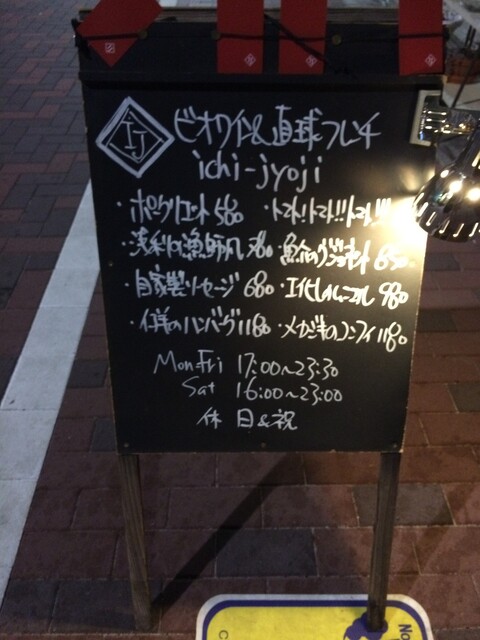 IJ
ビオワイン&直球フレンチ
ichi-jyoji
・ポークリエット580 ・トマト!トマト!!トマト!!!
・浅利の漁師風780 ・魚介のブジョネット650
・自家製ソーセージ 680 ・エイヒレのムニエル 980
・仔羊のハンバーグ1180 ・メカジキのコンフィ1180
Mon Fri 17:00~23:30
Sat 16:00~23:00
休 日&祝
No